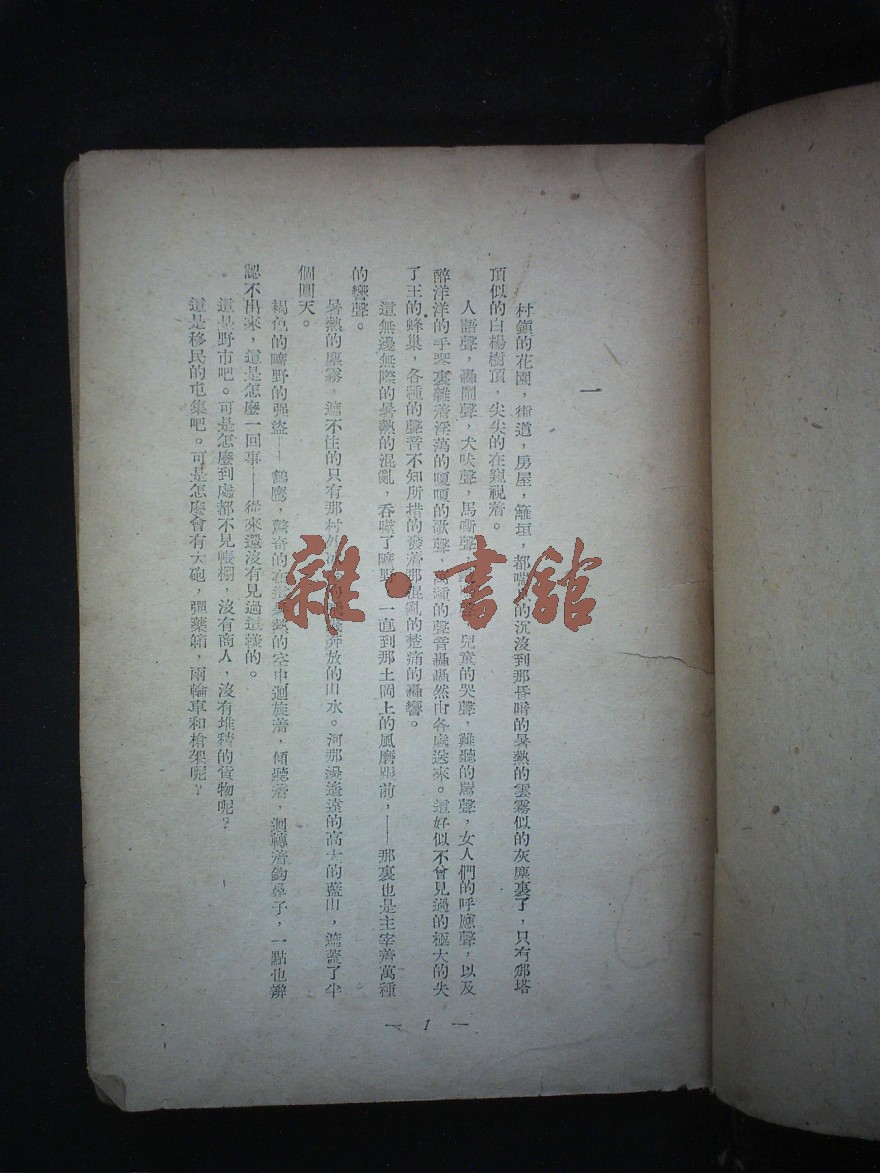 一
村鎭的花園，街道，房屋，籬垣，都嘴的沉沒到那昏暗的暑熱的雲霧似的灰塵裏了，只有那塔
頂似的白楊樹頂，尖尖的在窺視着。
人語聲，轟鬧聲，犬吠聲，馬嘶聲，兒童的哭聲，難聽的罵聲，女人們的呼應聲，以及
醉洋洋的手琴裏雜着淫蕩的嗄嗄的歌聲，萬種的聲音轟轟然由各處送來。這好似不曾見過的極大的失
了王的蜂巢，各種的聲音不知所措的發着那混亂的楚痛的轟響。
這無邊無際的暑熱的混亂，吞噬了曠野，一直到那土岡上的風磨跟前，——那裏也是主宰着萬種
的響聲。
暑熱的塵霧，遮不住的只有那村外奔放的山水。河那邊遙遠的高大的藍山，遮蓋了半
個圓天。
褐色的曠野的强盜——鶴鷹，驚奇的在熱的空中迴旋着，傾聽着，迴轉着鈎鼻子，一點也辨
認不出來，這是怎麼一回事——從來還沒有見過這樣的。
這是野市吧。可是怎麼到處都不見帳棚，沒有商人，沒有堆積的貨物呢？
這是移民的屯集吧。可是怎麼會有大砲，彈藥箱，兩輪車和槍架呢？
— 1 —
雜·書館